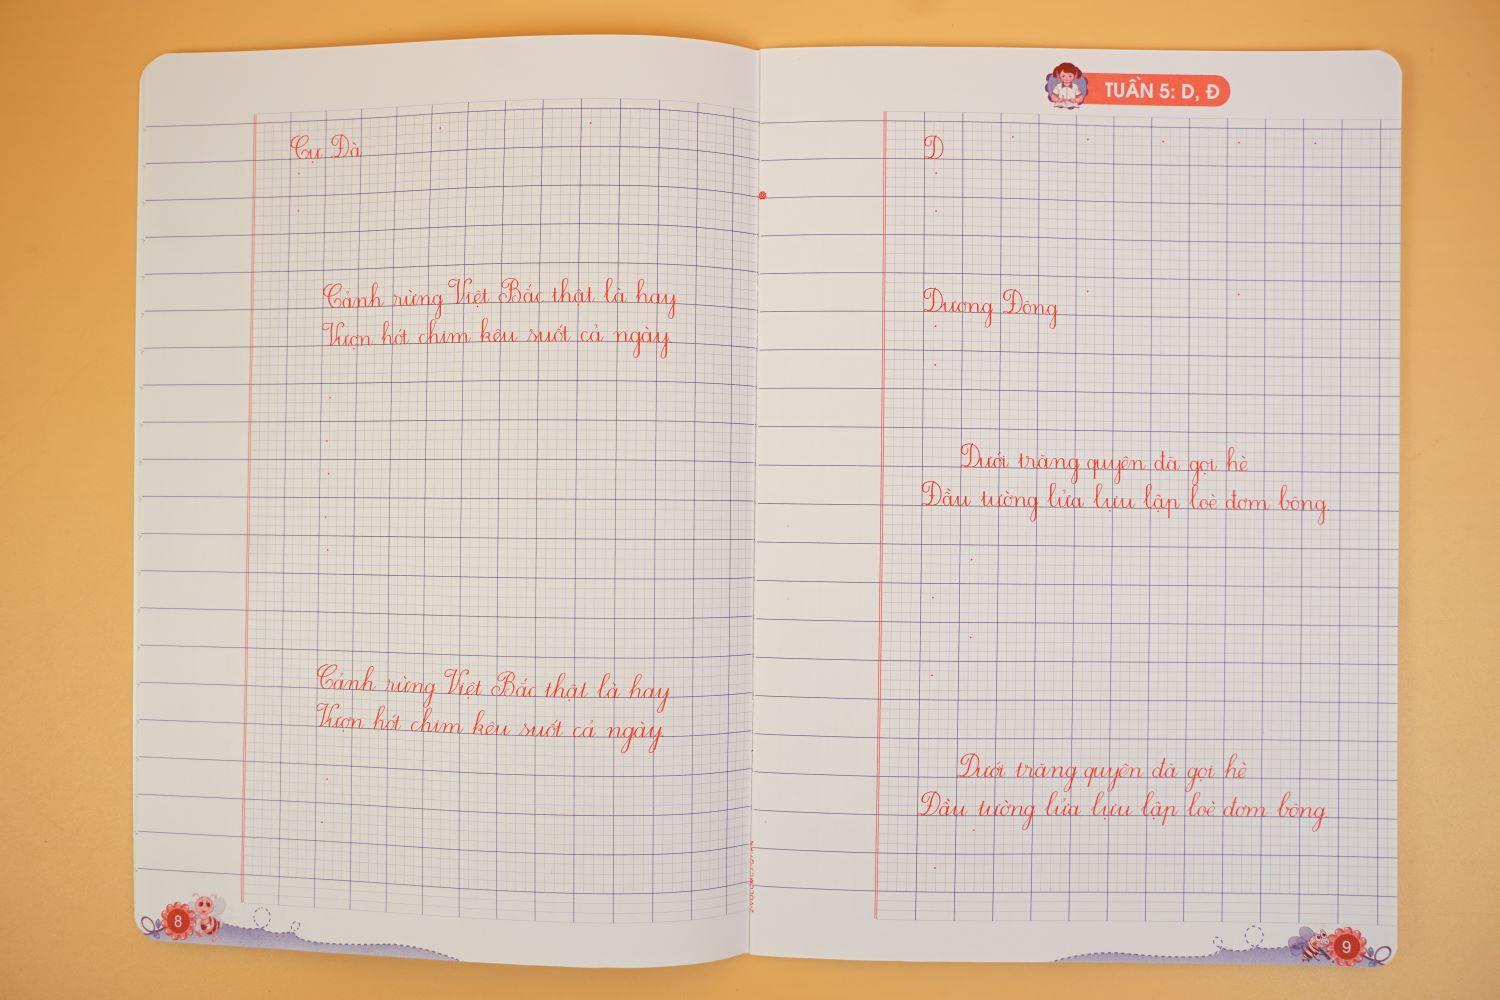 Cụ Đà
Cảnh rừng Việt Bắc thật là hay
Vượn hót chim kêu suốt cả ngày.
Cảnh rừng Việt Bắc thật là hay
Vượn hót chim kêu suốt cả ngày.
8
TUẦN 5: D, Đ
D
Dương Đông
Dưới trăng quyên đã gọi hè
Đầu tường lửa lựu lập loè đơm bông.
Dưới trăng quyên đã gọi hè
Đầu tường lửa lựu lập loè đơm bông.
9